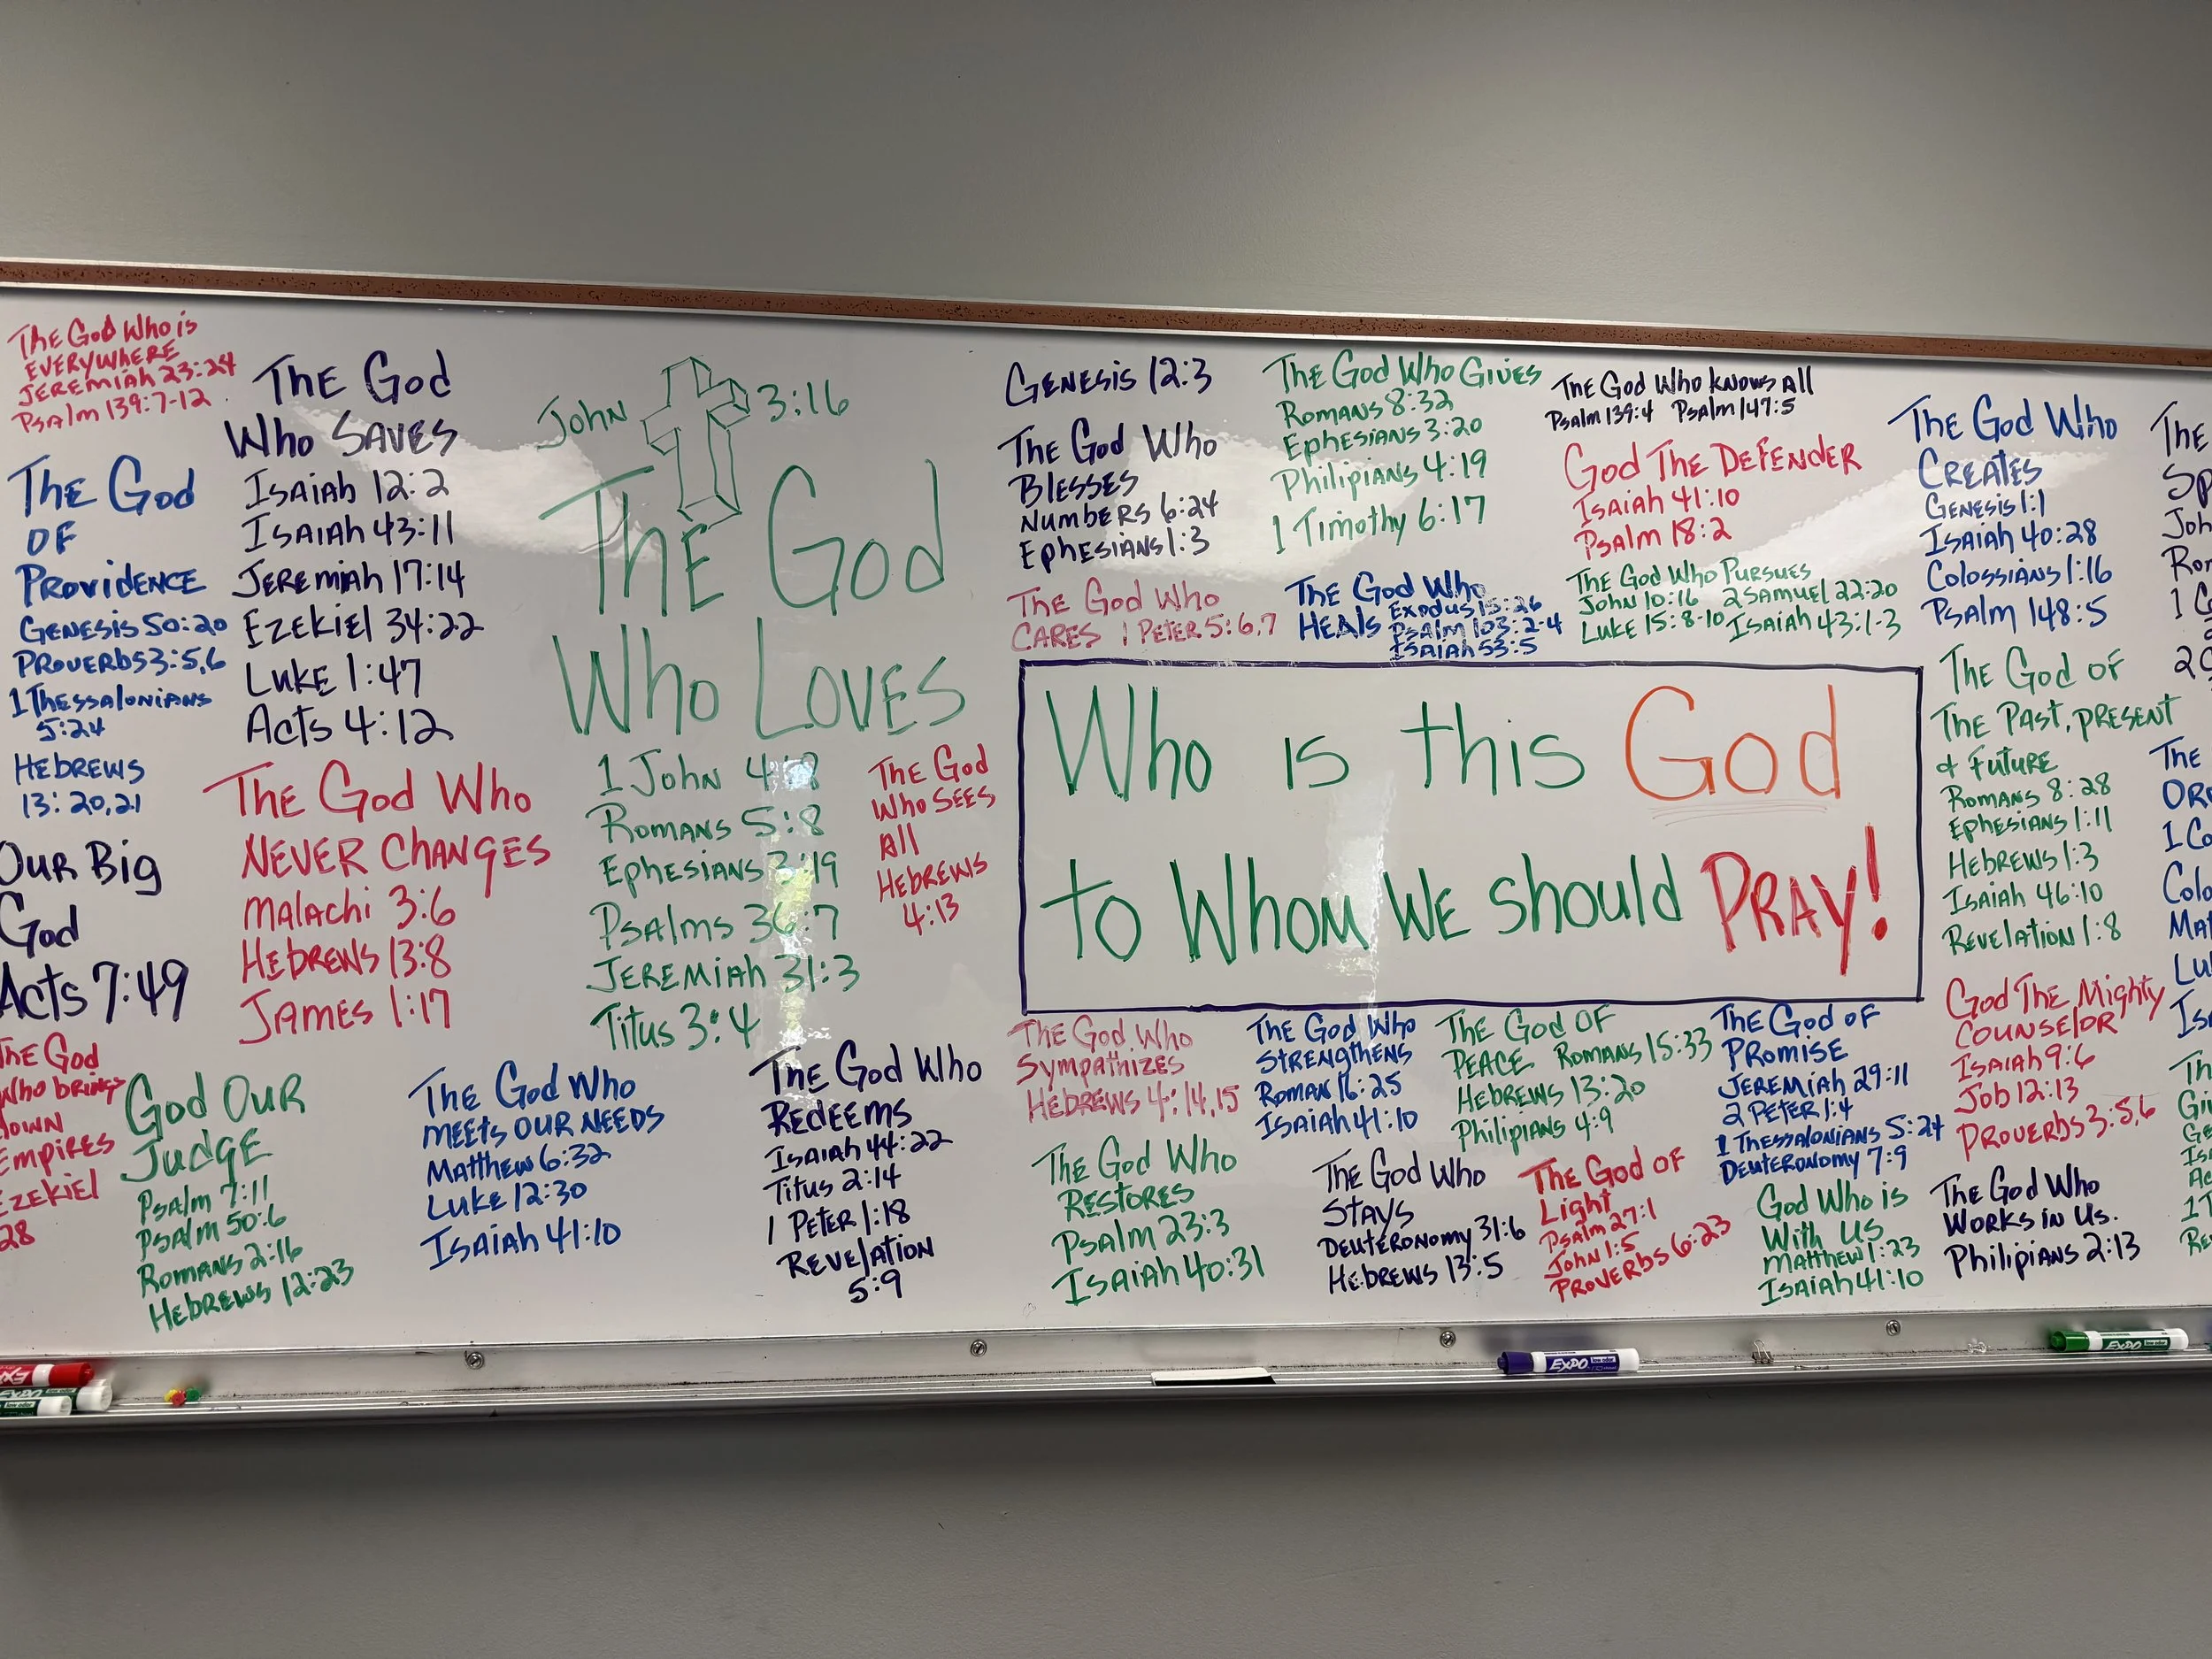 The God Who is
EVERYWHERE
JEREMIAH 23:24
Psalm 139:7-12
The God
OF
PROVIDENCE
GENESIS 50:20
PROVERBS 3:5,6
1 Thessalonians
5:24
HEBREWS
13:20,21
Our Big
God
Acts 7:49
The God
Who brings
down
Empires
Ezekiel
28
The God
Who SAVES
Isaiah 12:2
Isaiah 43:11
JEREMiah 17:14
EZEKiEl 34:22
LUKE 1:47
Acts 4:12
The God Who
NEVER ChANGES
Malachi 3:6
HEbREWS 13:8
JAMES 1:17
God Our
JudgE
Psalm 7:11
Psalm 50:6
Romans 2:16
HEbREWS 12:23
John 3:16
The God
Who LOVES
1 John 4:8
Romans 5:8
Ephesians 3:19
Psalms 36:7
JEREMiah 31:3
Titus 3:4
The God
Who SEES
All
HEBREWS
4:13
The God Who
MEETS OUR NEEDS
Matthew 6:32
Luke 12:30
Isaiah 41:10
The God Who
REdEEMS
Isaiah 44:22
Titus 2:14
1 PETER 1:18
REVElation
5:9
GENESIS 12:3
The God Who
BlESSES
NumbERS 6:24
Ephesians 1:3
The God Who
CARES 1 PETER 5:6,7
The God Who Gives
Romans 8:32
Ephesians 3:20
Philipians 4:19
1 Timothy 6:17
The God Who
HEAls Exodus 15:26
Psalm 103:2-4
Isaiah 53:5
The God Who knows All
Psalm 139:4 Psalm 147:5
God The DEFENdER
Isaiah 41:10
Psalm 18:2
The God Who Pursues
John 10:16 2 Samuel 22:20
Luke 15:8-10 Isaiah 43:1-3
Who is this God
to Whom WE should PRAY!
The God Who
Sympathizes
HEbREWS 4:14,15
The God Who
Strengthens
Roman 16:25
Isaiah 41:10
The God OF
PEACE Romans 15:33
HEbREWS 13:20
Philipians 4:9
The God of
PROMISE
JEREMiah 29:11
2 PETER 1:4
1 Thessalonians 5:24
DEUTERONOMY 7:9
The God Who
RESTORES
Psalm 23:3
Isaiah 40:31
The God Who
Stays
DEUTERONOMY 31:6
HEbREWS 13:5
The God of
Light
Psalm 27:1
John 1:5
PROVERbs 6:23
God Who is
With US
Matthew 1:23
Isaiah 41:10
The God Who
CREATES
GENESIS 1:1
Isaiah 40:28
Colossians 1:16
Psalm 148:5
The God of
The Past, PRESENT
& Future
Romans 8:28
Ephesians 1:11
HEbREWS 1:3
Isaiah 46:10
REVElation 1:8
God The Mighty
COUNSElOR
Isaiah 9:6
Job 12:13
PROVERbs 3:5,6
The God Who
WORKS in Us.
Philipians 2:13
The
The
EXPO
EXPO
EXPO